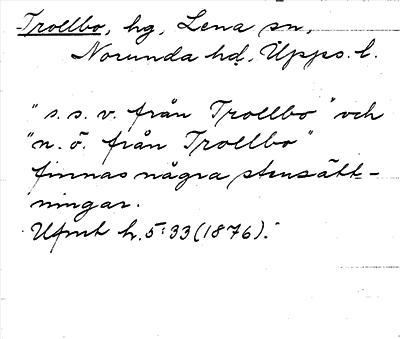 Trollbo, hg, Lena sn,
Norunda hd, Upps. l.
"s. s. v. från Trollbo" och
"n. ö. från Trollbo"
finnas några stensätt-
ningar.
Ufmt h. 5:33 (1876).